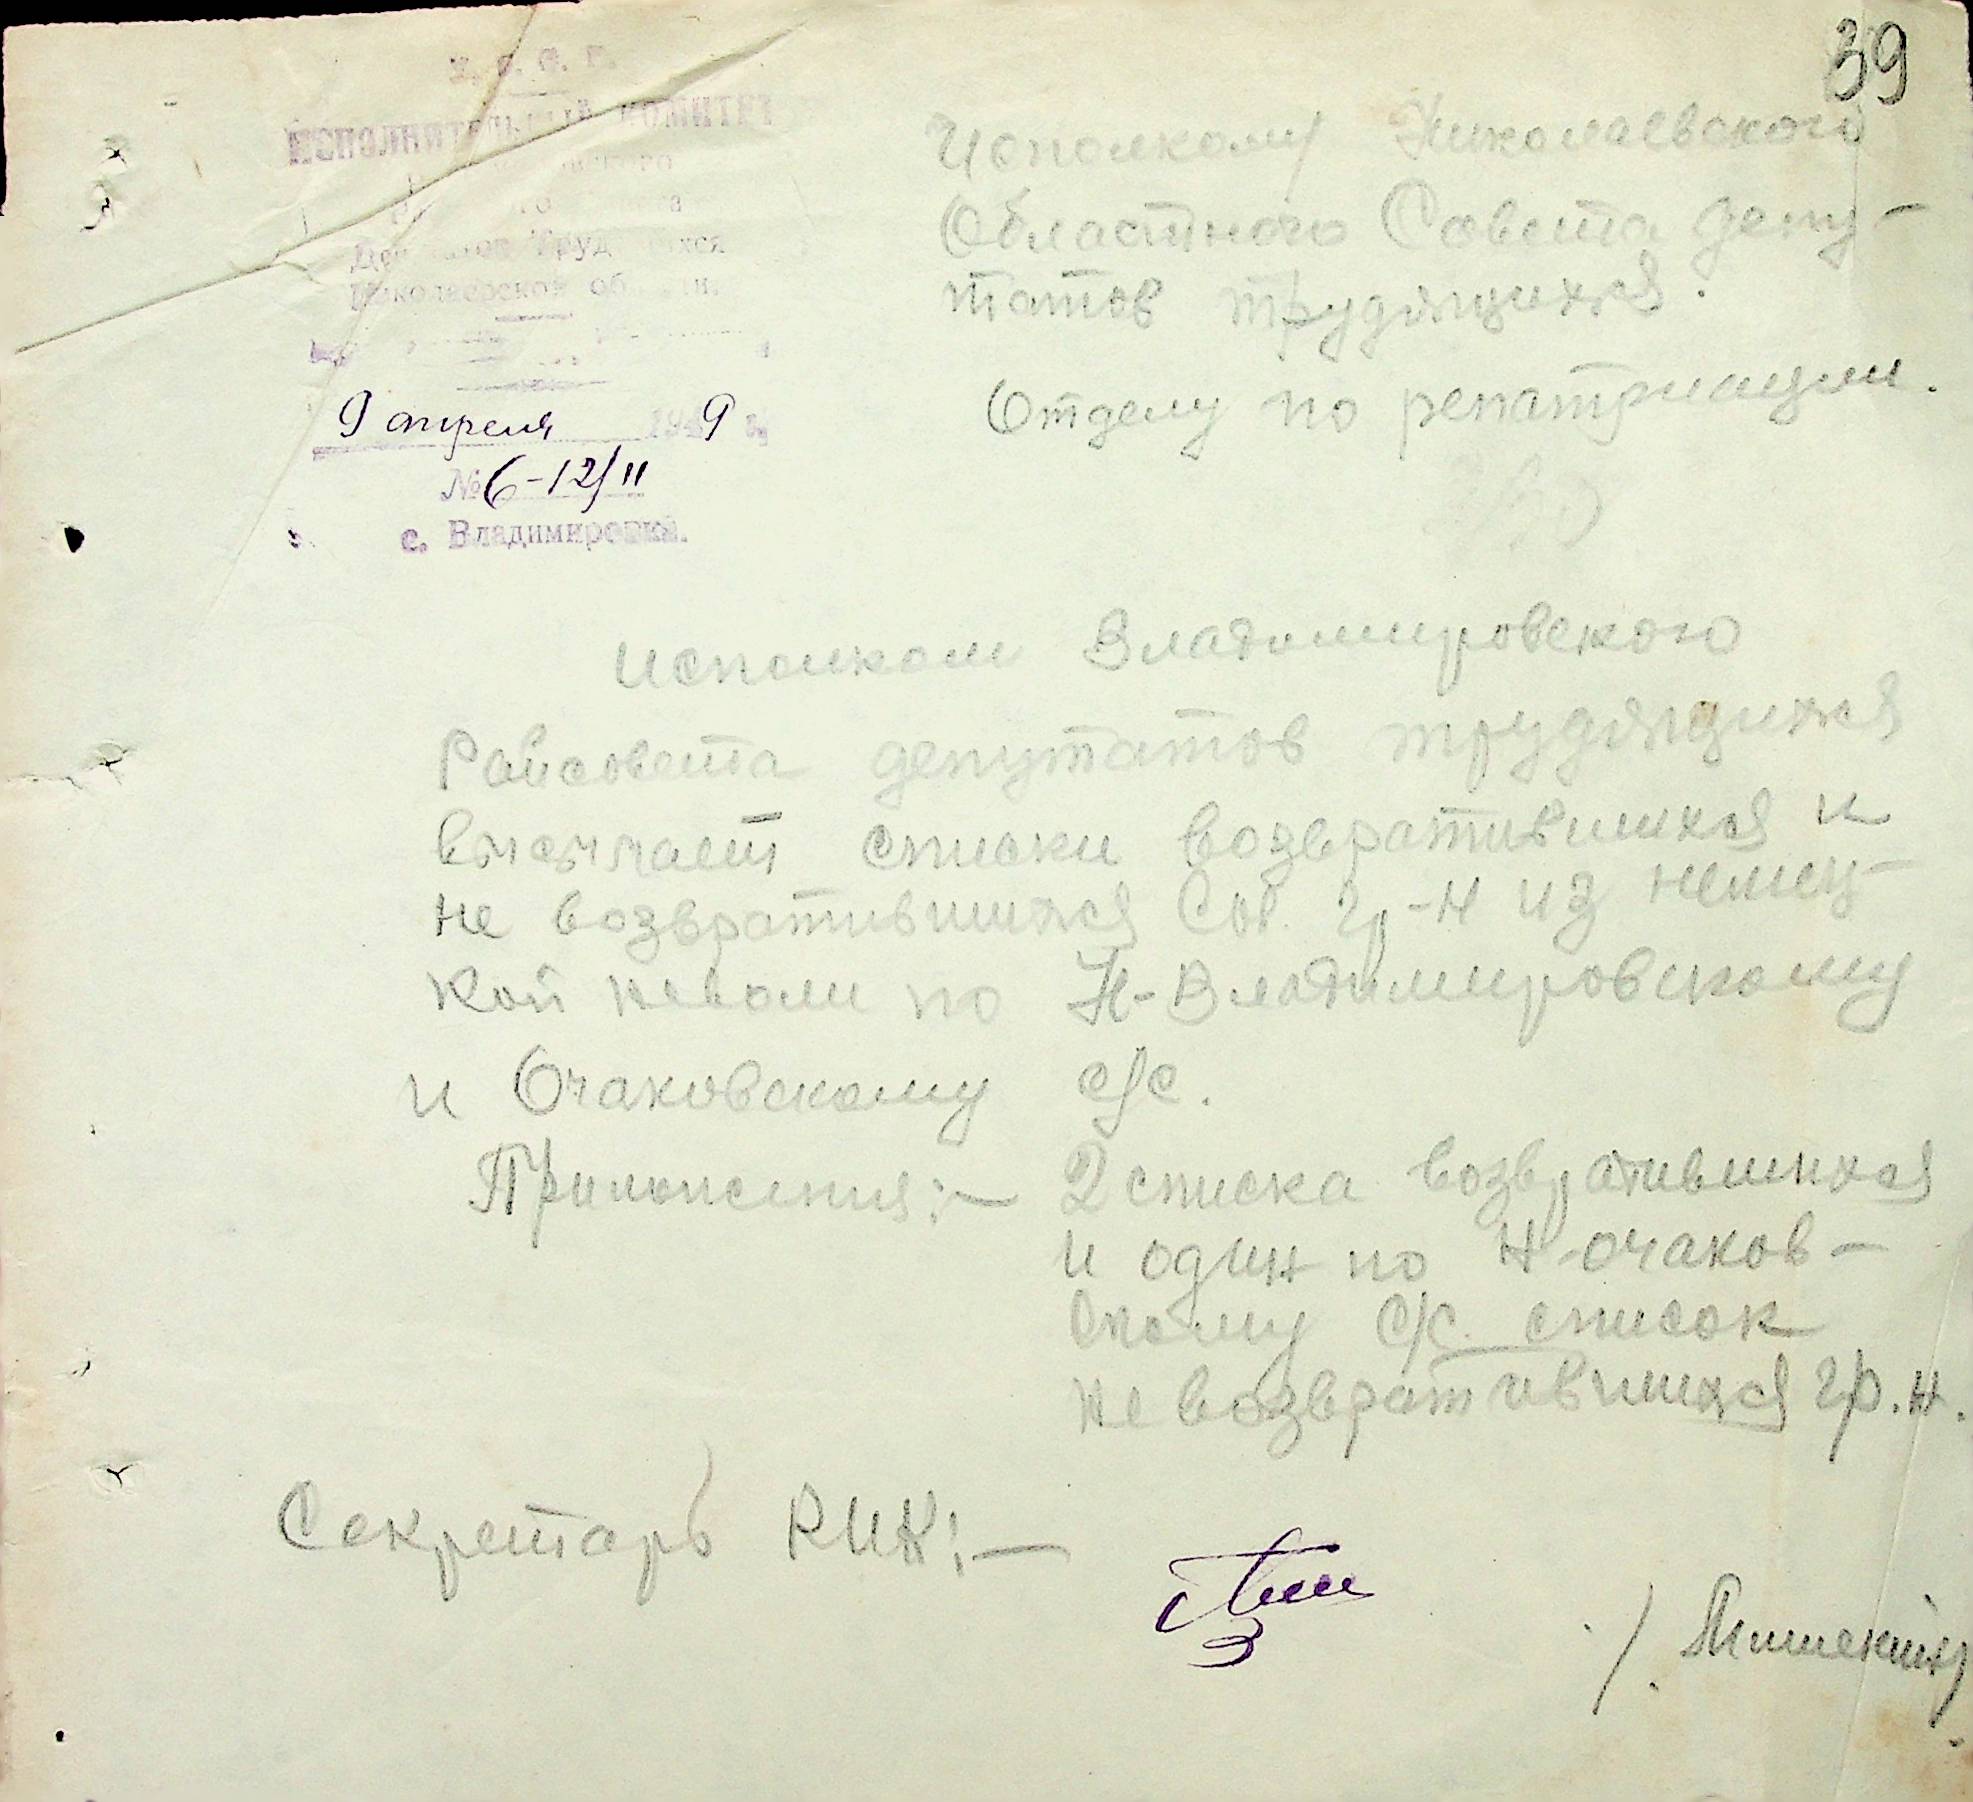 39
У. С. С. Р.
ИСПОЛНИТЕЛЬНЫЙ КОМИТЕТ
Депутатов Трудящихся
Николаевской области
9 апреля 1949 г.
№ 6-12/11
с. Владимировка.
Исполкому Николаевского
Областного Совета депу-
татов трудящихся.
Отделу по репатриации.
Исполком Владимировского
Райсовета депутатов трудящихся
высылает списки возвратившихся и
не возвратившихся Сов. гр-н из немец-
кой неволи по Н-Владимировскому
и Очаковскому с/с.
Приложения:— 2 списка возвратившихся
и один по Н-очаков-
скому с/с. список
не возвратившихся гр.н.
Секретарь РИК:—